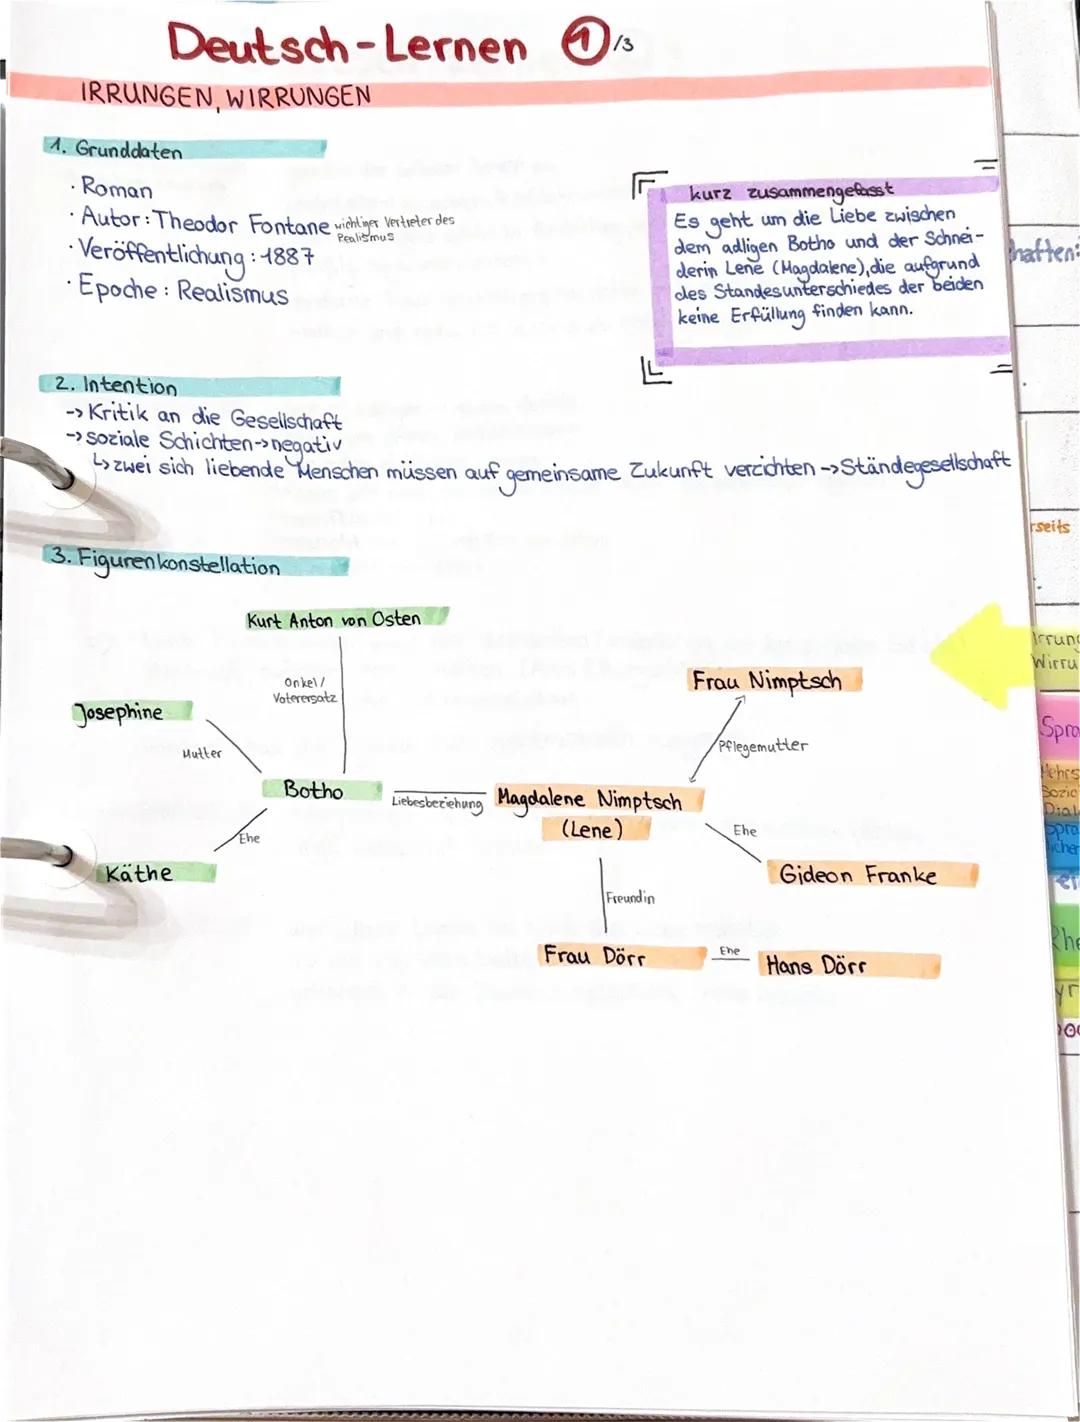 Deutsch-Lernen 1/3
IRRUNGEN, WIRRUNGEN
1. Grunddaten
· Roman
· Autor: Theodor Fontane wichtiger Vertreter des
Realismus
· Veröffentlichung: 1887
· Epoche: Realismus
kurz zusammengefasst
Es geht um die Liebe zwischen
dem adligen Botho und der Schnei-
derin Lene (Magdalene), die aufgrund
des Standesunterschiedes der beiden
keine Erfüllung finden kann.
2. Intention
-> Kritik an die Gesellschaft
-> soziale Schichten -> negativ
↳ zwei sich liebende Menschen müssen auf gemeinsame Zukunft verzichten -> Ständegesellschaft
3. Figurenkonstellation
Kurt Anton von Osten
Onkel/
Vaterersatz
Frau Nimptsch
Josephine
Mutter
Pflegemutter
Botho
Liebesbeziehung
Magdalene Nimptsch
(Lene)
Ehe
Ehe
Käthe
Gideon Franke
Freundin
Frau Dörr
Ehe
Hans Dörr
haften:
rseits
Irrung
Wirru
Spra